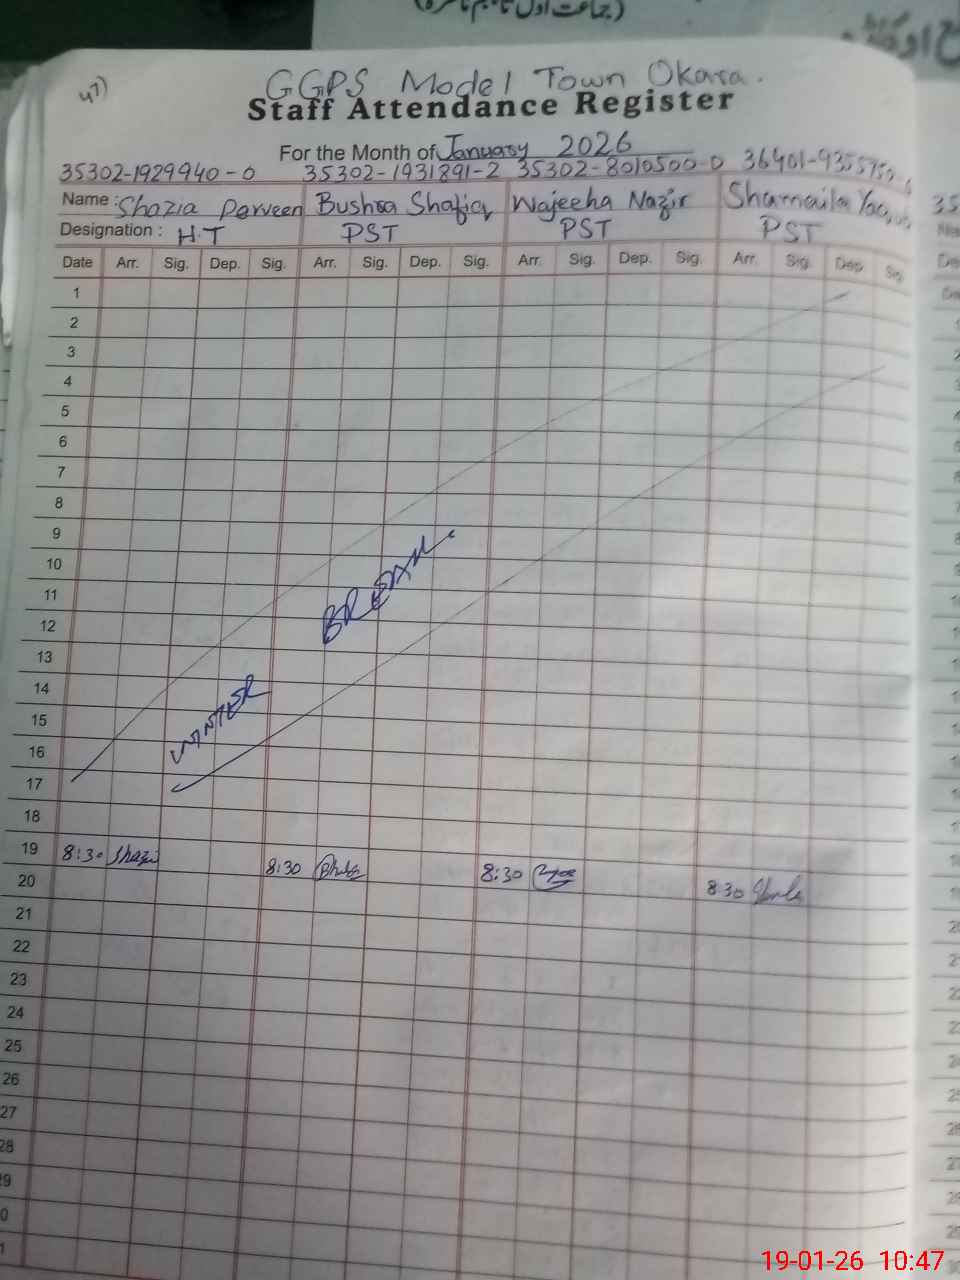 (جماعت اول تا پنجم ناظرہ)
47)
GGPS Model Town Okara.
Staff Attendance Register
For the Month of January 2026
35302-1929940-0 35302-1931891-2 35302-8010500-0 36401-9355750-
Name : Shazia Parveen Bushra Shafiq Wajeeha Nazir Shamaila
Designation : H.T PST PST PST
Date Arr. Sig. Dep. Sig. Arr. Sig. Dep. Sig. Arr. Sig. Dep. Sig. Arr. Sig. Dep. Sig.
1
2
3
4
5
6
7
8
9
10
11
12
13
14
15
16
17
WINTER BREAK
18
19 8:30 Shazi 8:30 8:30 8:30
20
21
22
23
24
25
26
27
28
9
0
1
19-01-26 10:47